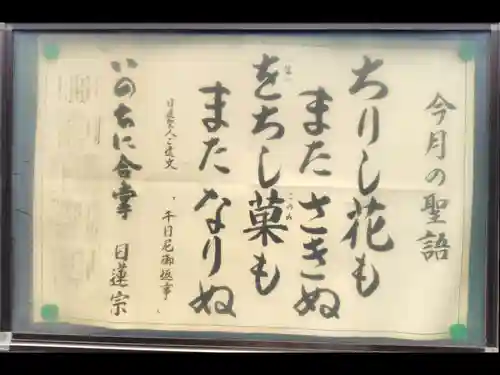 今月の聖語
ちりし花も
またさきぬ
をちし菓も
またなりぬ
日蓮聖人ご遺文
千日尼御返事
いのちに合掌 日蓮宗